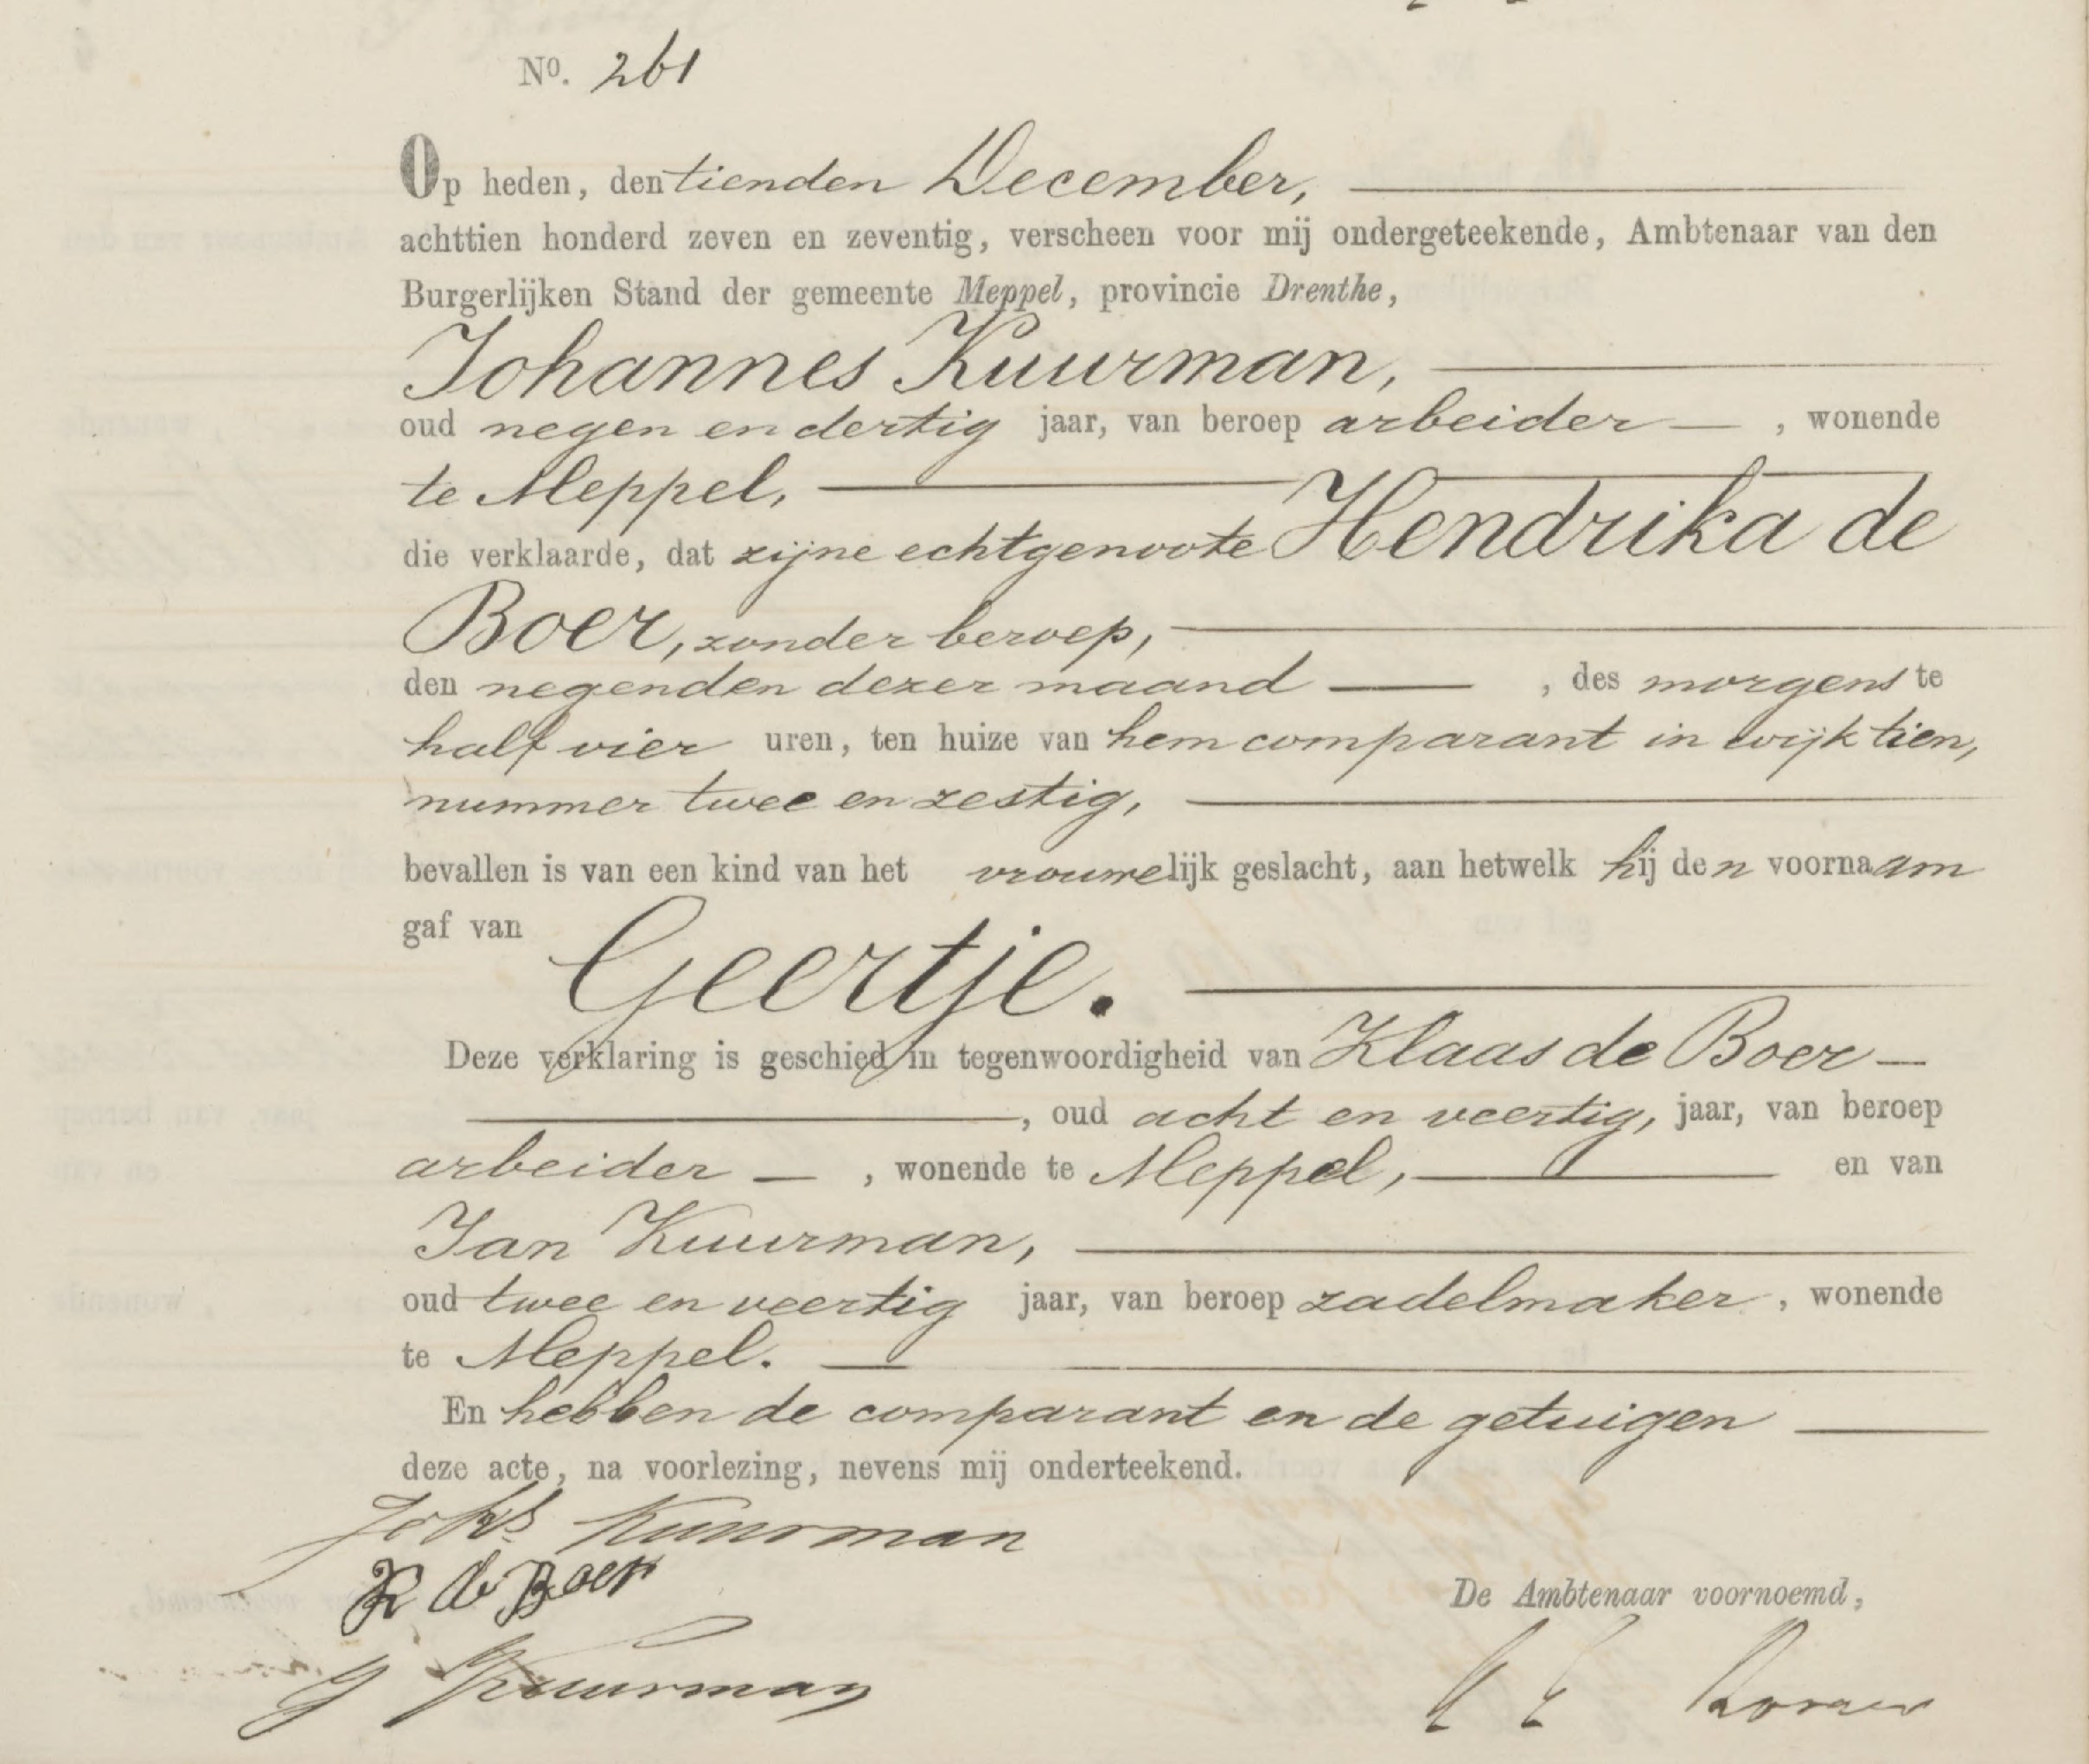 Nº. 261
Op heden, den tienden December,
achttien honderd zeven en zeventig, verscheen voor mij ondergeteekende, Ambtenaar van den
Burgerlijken Stand der gemeente Meppel, provincie Drenthe,
Johannes Kuurman,
oud negen en dertig jaar, van beroep arbeider —, wonende
te Meppel,
die verklaarde, dat zijne echtgenoote Hendrika de
Boer, zonder beroep,
den negenden dezer maand —, des morgens te
half vier uren, ten huize van hem comparant in wijk tien,
nummer twee en zestig,
bevallen is van een kind van het vrouwelijk geslacht, aan hetwelk hij den voornaam
gaf van
Geertje.
Deze verklaring is geschied in tegenwoordigheid van Klaas de Boer —
, oud acht en veertig, jaar, van beroep
arbeider —, wonende te Meppel, en van
Jan Kuurman,
oud twee en veertig jaar, van beroep zadelmaker, wonende
te Meppel.
En hebben de comparant en de getuigen
deze acte, na voorlezing, nevens mij onderteekend.
Johs Kuurman
K de Boer
De Ambtenaar voornoemd,
J Kuurman